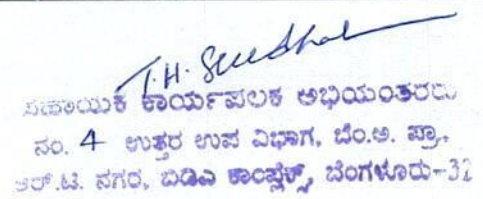 T.H.
ಸಹಾಯಕ ಕಾರ್ಯಪಾಲಕ ಅಭಿಯಂತರರು
ನಂ. 4 ಉತ್ತರ ಉಪ ವಿಭಾಗ, ಬೆಂ.ಅ. ಪ್ರಾ,
ಆರ್.ಟಿ. ನಗರ, ಬಿಡಿಎ ಕಾಂಪ್ಲೆಕ್ಸ್, ಬೆಂಗಳೂರು-32